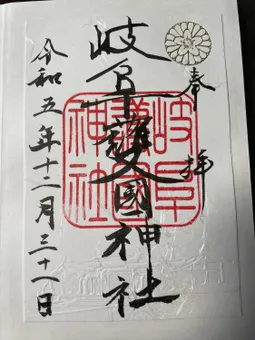 奉拝
岐阜護國神社
令和五年十二月三十一日
岐阜
護國
神社